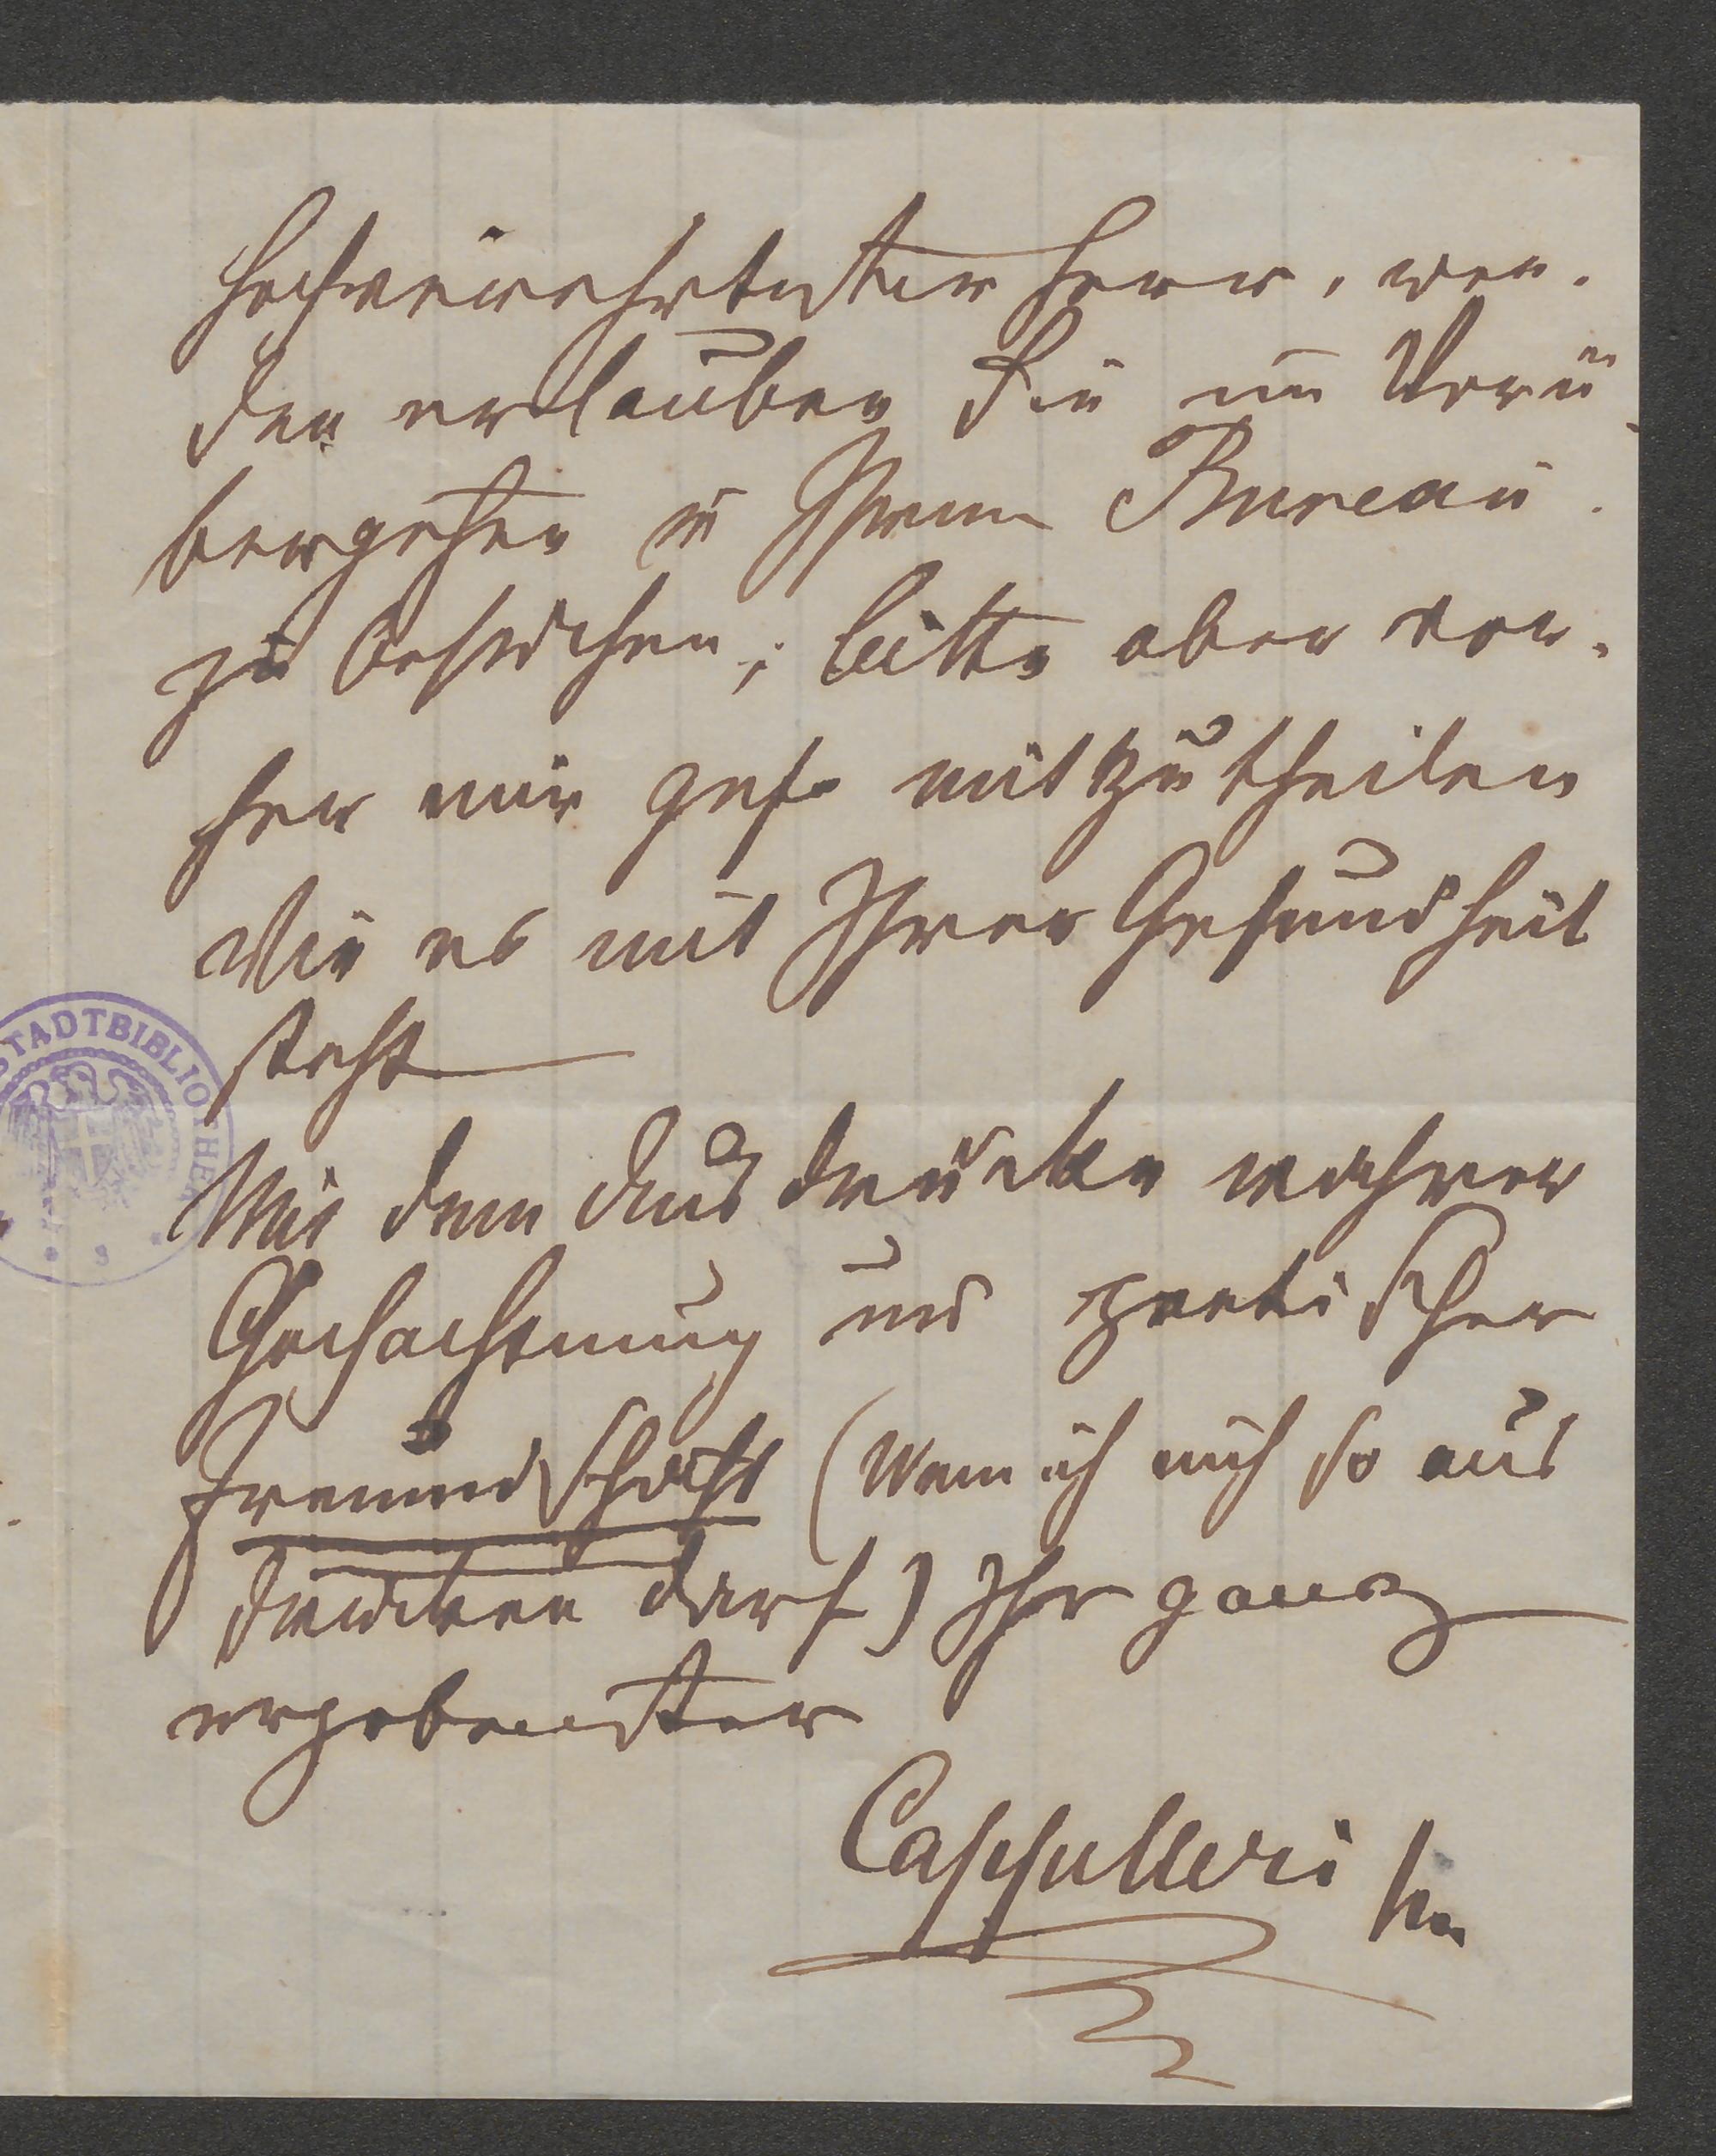 Hochverehrtester Herr, wer-
den erlauben Sie im Vorü
bergehen in Ihrem Bureau
zu besuchen; bitte aber vor-
her mir gef. mitzutheilen
Wie es mit Ihrer Gesundheit
steht
Mit dem Ausdrucke wahrer
Hochachtung und poetischer
Freundschaft (Wenn ich mich so aus
drücken darf) Ihr ganz
ergebenster
Cappilleri
STADTBIBLIOTHEK